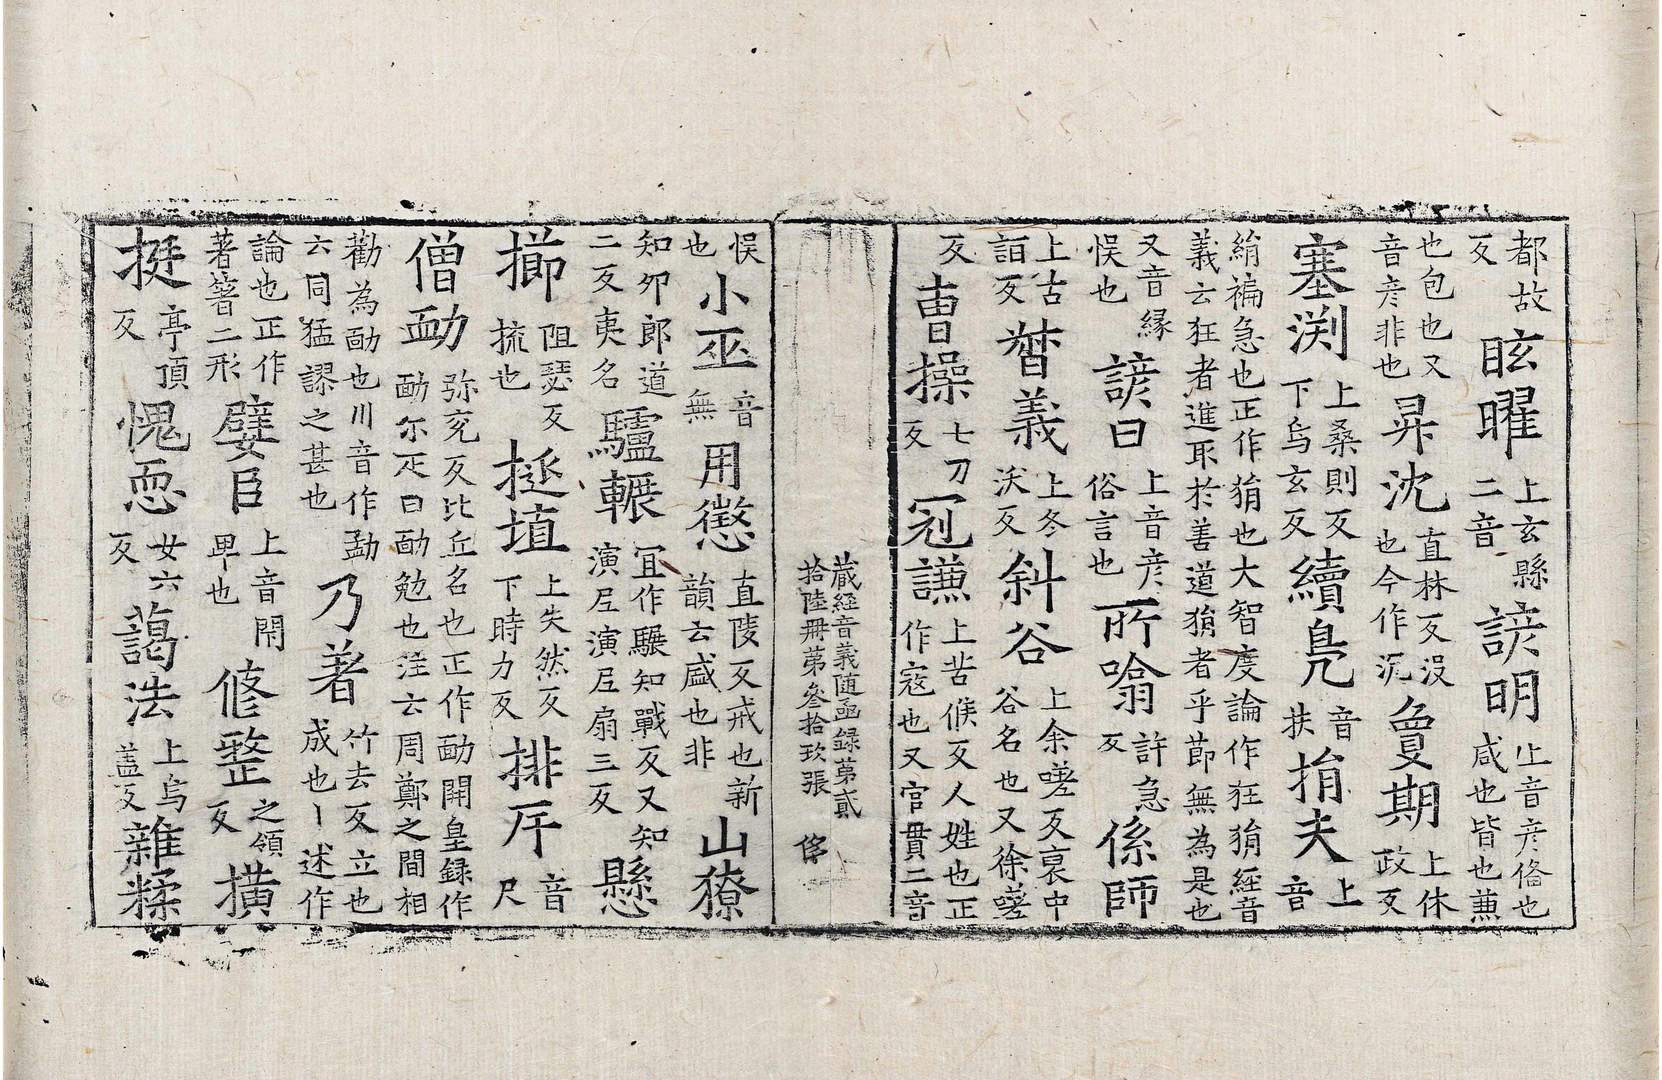 都故反眩曜上玄縣二音諺明上音彦俻也咸也皆也蕭
也包也又音彦非也昇沈直林反没也今作沉夐期上休政反
塞渕上桑則反下烏玄反續鳧音扶㨉夫上音
絹褊急也正作狷也大智度論作狂狷經音義云狂者進取於善道狷者乎節無為是也
又音縁悮也諺曰上音彦俗言也所噏許急反係師
上古詣反朁義上冬沃反斜谷上余嗟反裒中谷名也又徐嗟
反曺操七刀反冦謙上苦候反人姓也正作寇也又官貫二音
蔵經音義随函録弟貳拾陸冊第叄拾玖張 㑋
悮也小巫音無用懲直陵反戒也新韻云盛也非山獠
知夘郎道二反夷名驢輾冝作驏知戰反又知演尼演尼扇三反懸
擳阻瑟反梳也挻埴上失然反下時力反排斥音尺
僧勔弥兖反比丘名也正作勔開皇録作勔尓疋曰勔勉也注云周鄭之間相
勸為勔也川音作勐六同猛謬之甚也乃著竹去反立也成也丨述作
論也正作著箸二形嬖臣上音閇畀也修整之領反撗
挺亭頂反愧恧女六反藹法上烏盖反雜糅